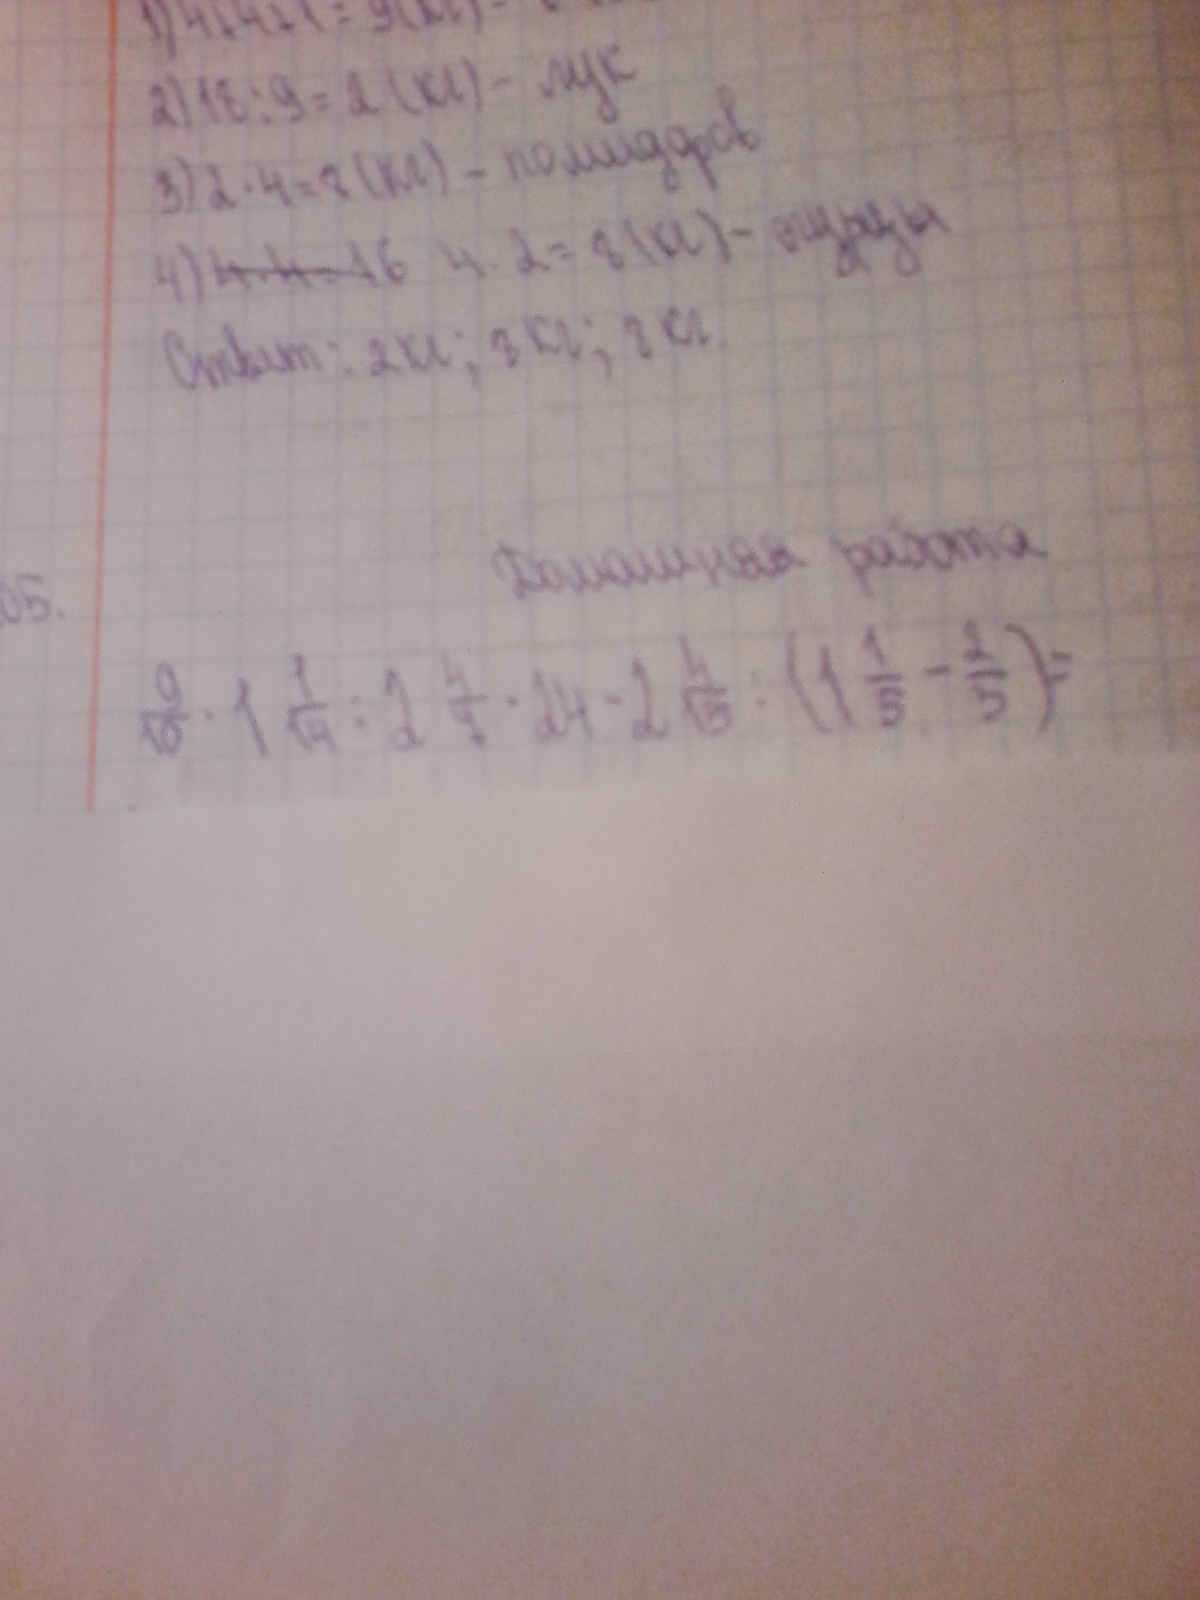 1) 4+4+1=9(кг)-
2) 18:9=2(кг)- лук
3) 2·4=8(кг)- помидоров
4) 4·4=16 4·2=8(кг)- огурцы
Ответ: 2кг; 8кг; 8кг.
Домашняя работа
05.
9/10 · 1 1/14 : 2 4/7 · 24 - 2 4/15 : (1 1/5 - 2/5)=